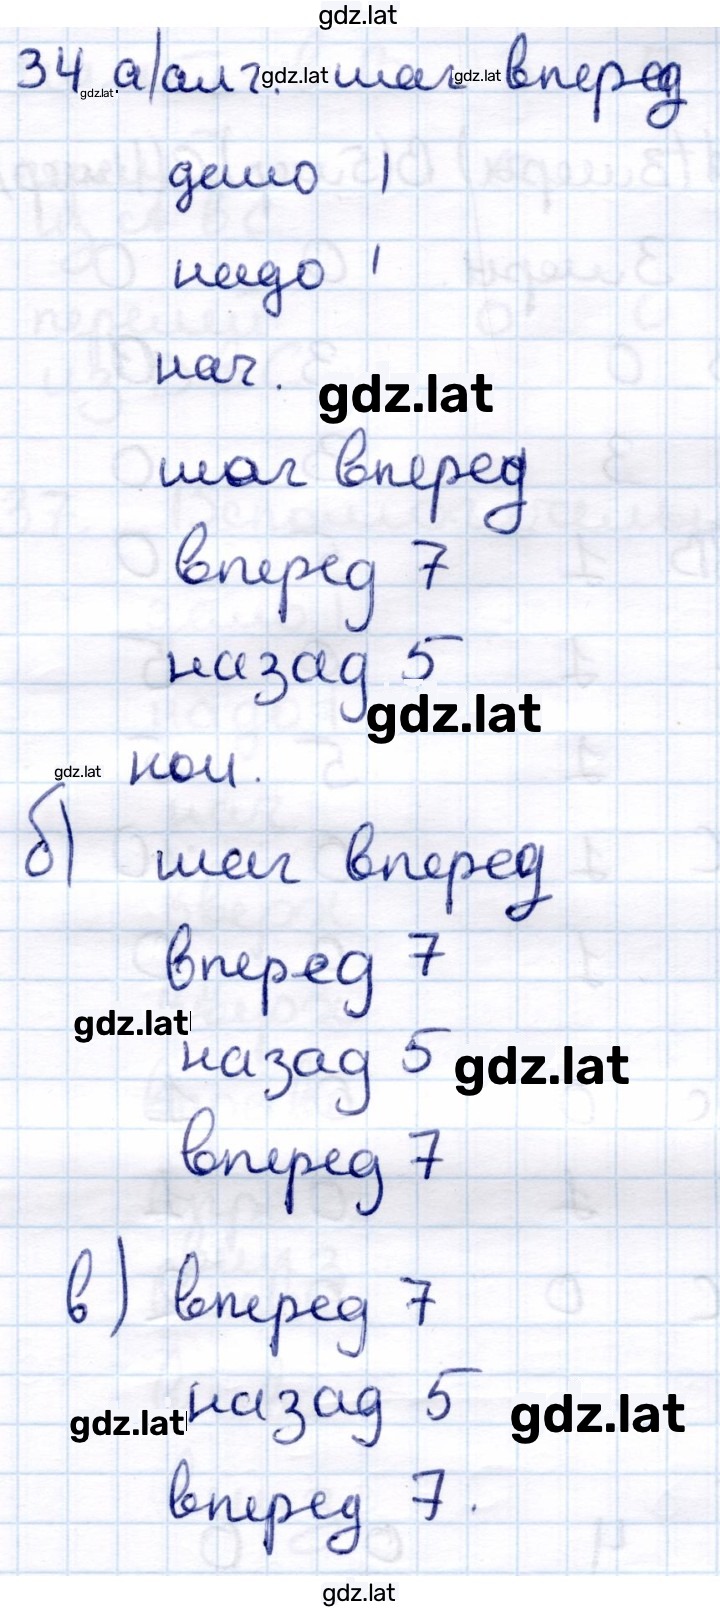 gdz.lat
34 а) алг. шаг вперед
gdz.lat gdz.lat gdz.lat
дано |
надо |
нач.
gdz.lat
шаг вперед
вперед 7
назад 5
gdz.lat
gdz.lat кон.
б) шаг вперед
вперед 7
gdz.lat
назад 5 gdz.lat
вперед 7
в) вперед 7
gdz.lat назад 5 gdz.lat
вперед 7.
gdz.lat